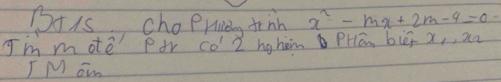 BT15 cho Phương trình x² - mx + 2m - 4 = 0
Tìm m để ptr có 2 nghiệm phân biệt x₁, x₂
TM âm